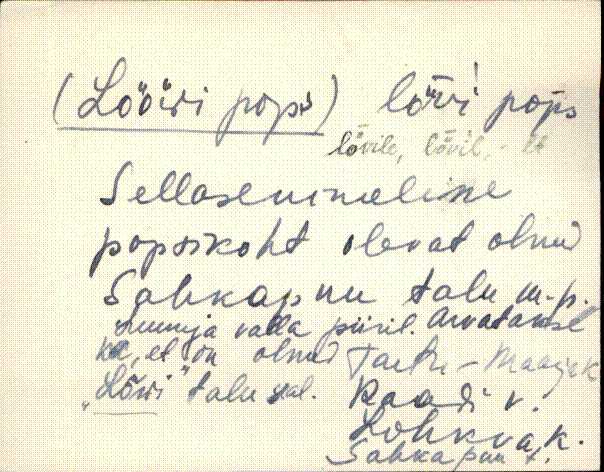 (Lööwi pops) lȫvi pops
lövile, lövil, - lt
Sellasenimeline
popsikoht olevat olnud
Sahkapuu talu m.p.
Luunja valla piiril. Arvatakse
ka, et on olnud
"Lõwi" talu
Tartu-Maarja k
Raadi v.
Lohkva k.
Sahkapuu t.